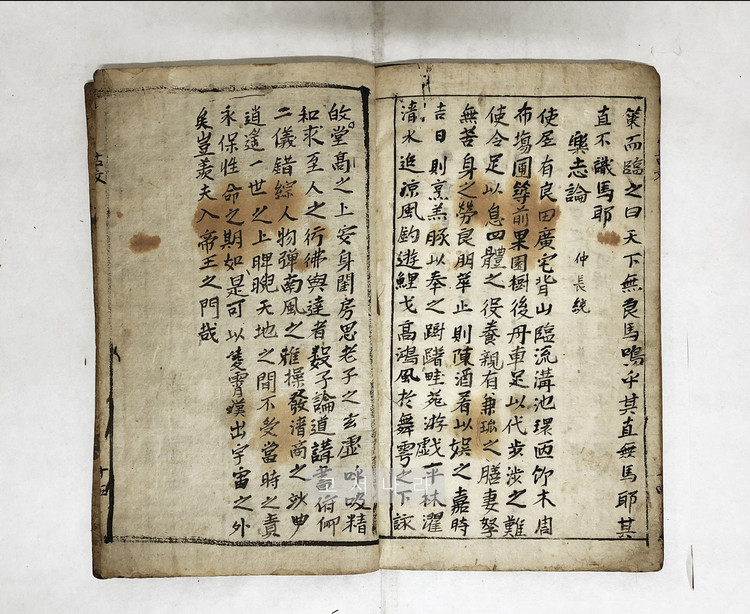 策而臨之曰天下無良馬嗚乎其直無馬耶其
直不識馬耶
樂志論 仲長統
使居有良田廣宅背山臨流溝池環匝竹木周
布場圃築前果園樹後舟車足以代步涉之難
使令足以息四體之役養親有兼珎之膳妻孥
無苦身之勞良朋萃止則陳酒肴以娛之嘉時
吉日則烹羔豚以奉之躊躇畦苑游戱平林濯
清水追凉風釣遊鯉弋高鴻風於舞雩之下詠
皈堂高之上安身閨房思老子之玄虛呼吸精
和求至人之彷彿與達者數子論道講書俯仰
二儀錯綜人物彈南風之雅操發清商之妙曲
逍遙一世之上睥睨天地之間不受當時之責
永保性命之期如是可以凌霄漢出宇宙之外
矣豈羨夫入帝王之門哉
古文
十四
고서나라